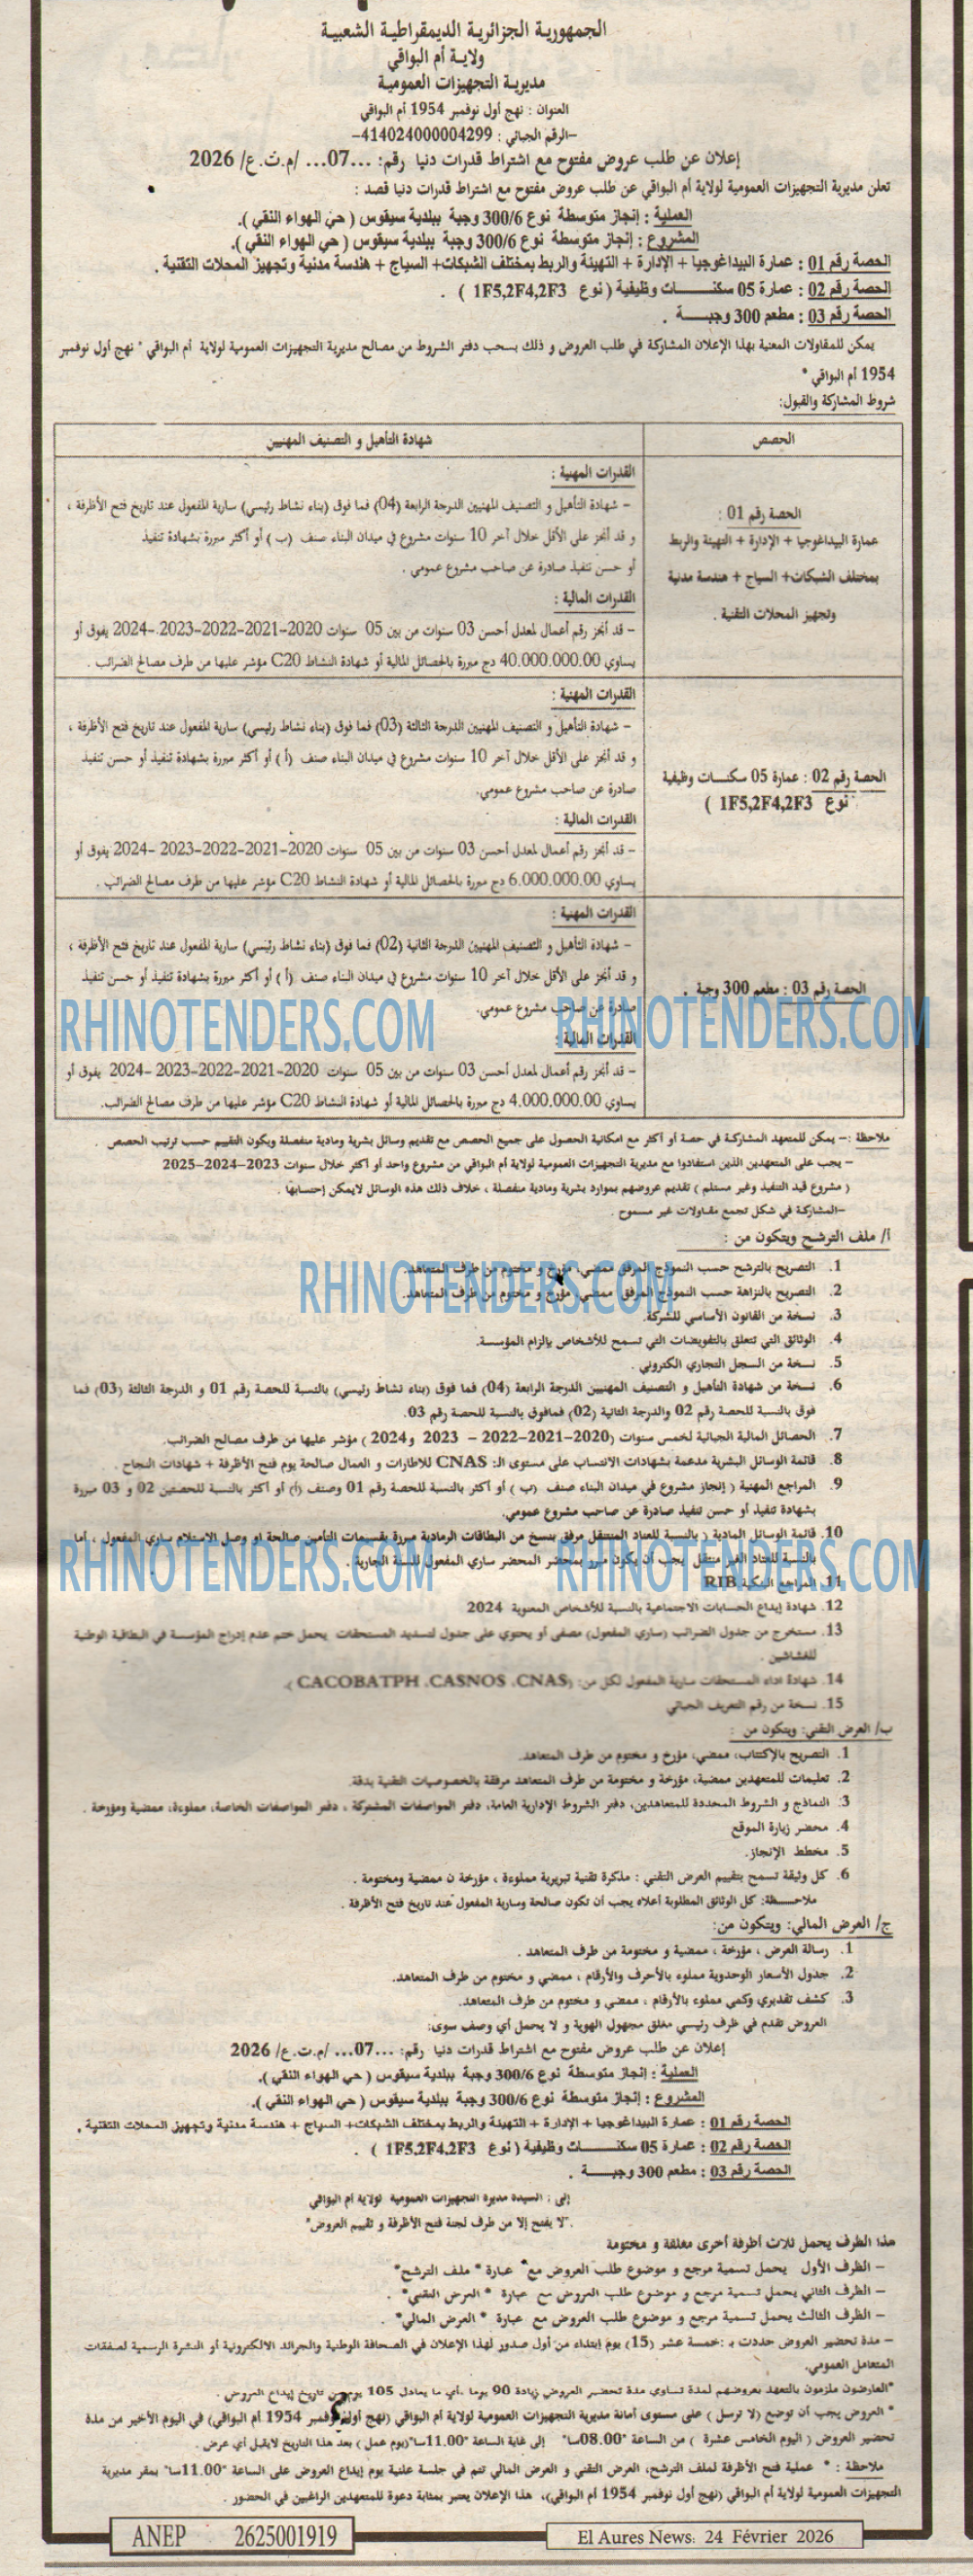 الجمهورية الجزائرية الديمقراطية الشعبية
ولاية أم البواقي
مديرية التجهيزات العمومية
العنوان : نهج أول نوفمبر 1954 أم البواقي
-الرقم الجبائي : 414024000004299-
إعلان عن طلب عروض مفتوح مع اشتراط قدرات دنيا رقم: ...07... /م.ت.ع/ 2026
تعلن مديرية التجهيزات العمومية لولاية أم البواقي عن طلب عروض مفتوح مع اشتراط قدرات دنيا قصد :
العملية : إنجاز متوسطة نوع 300/6 وجبة ببلدية سيقوس ( حي الهواء النقي ).
المشروع : إنجاز متوسطة نوع 300/6 وجبة ببلدية سيقوس ( حي الهواء النقي ).
الحصة رقم 01 : عمارة البيداغوجيا + الإدارة + التهيئة والربط بمختلف الشبكات+ السياج + هندسة مدنية وتجهيز المحلات التقنية .
الحصة رقم 02 : عمارة 05 سكنــــــات وظيفية ( نوع 1F5,2F4,2F3 ) .
الحصة رقم 03 : مطعم 300 وجبـــــة .
يمكن للمقاولات المعنية بهذا الإعلان المشاركة في طلب العروض و ذلك بسحب دفتر الشروط من مصالح مديرية التجهيزات العمومية لولاية أم البواقي " نهج أول نوفمبر
1954 أم البواقي "
شروط المشاركة والقبول:
الحصص
شهادة التأهيل و التصنيف المهنيين
الحصة رقم 01 :
عمارة البيداغوجيا + الإدارة + التهيئة والربط
بمختلف الشبكات+ السياج + هندسة مدنية
وتجهيز المحلات التقنية .
القدرات المهنية :
- شهادة التأهيل و التصنيف المهنيين الدرجة الرابعة (04) فما فوق (بناء نشاط رئيسي) سارية المفعول عند تاريخ فتح الأظرفة ،
و قد أنجز على الأقل خلال آخر 10 سنوات مشروع في ميدان البناء صنف ( ب ) أو أكثر مبررة بشهادة تنفيذ
أو حسن تنفيذ صادرة عن صاحب مشروع عمومي .
القدرات المالية :
- قد أنجز رقم أعمال لمعدل أحسن 03 سنوات من بين 05 سنوات 2020-2021-2022-2023-2024 يفوق أو
يساوي 40.000.000.00 دج مبررة بالحصائل المالية أو شهادة النشاط C20 مؤشر عليها من طرف مصالح الضرائب .
الحصة رقم 02 : عمارة 05 سكنــــات وظيفية
نوع 1F5,2F4,2F3 )
القدرات المهنية :
- شهادة التأهيل و التصنيف المهنيين الدرجة الثالثة (03) فما فوق (بناء نشاط رئيسي) سارية المفعول عند تاريخ فتح الأظرفة ،
و قد أنجز على الأقل خلال آخر 10 سنوات مشروع في ميدان البناء صنف (أ ) أو أكثر مبررة بشهادة تنفيذ أو حسن تنفيذ
صادرة عن صاحب مشروع عمومي.
القدرات المالية :
- قد أنجز رقم أعمال لمعدل أحسن 03 سنوات من بين 05 سنوات 2020-2021-2022-2023-2024 يفوق أو
يساوي 6.000.000.00 دج مبررة بالحصائل المالية أو شهادة النشاط C20 مؤشر عليها من طرف مصالح الضرائب .
الحصة رقم 03 : مطعم 300 وجبة .
القدرات المهنية :
- شهادة التأهيل و التصنيف المهنيين الدرجة الثانية (02) فما فوق (بناء نشاط رئيسي) سارية المفعول عند تاريخ فتح الأظرفة ،
و قد أنجز على الأقل خلال آخر 10 سنوات مشروع في ميدان البناء صنف (أ ) أو أكثر مبررة بشهادة تنفيذ أو حسن تنفيذ
صادرة عن صاحب مشروع عمومي.
القدرات المالية :
- قد أنجز رقم أعمال لمعدل أحسن 03 سنوات من بين 05 سنوات 2020-2021-2022-2023-2024 يفوق أو
يساوي 4.000.000.00 دج مبررة بالحصائل المالية أو شهادة النشاط C20 مؤشر عليها من طرف مصالح الضرائب.
RHINOTENDERS.COM
RHINOTENDERS.COM
ملاحظة :- يمكن للمتعهد المشاركة في حصة أو أكثر مع امكانية الحصول على جميع الحصص مع تقديم وسائل بشرية ومادية منفصلة ويكون التقييم حسب ترتيب الحصص .
- يجب على المتعهدين الذين استفادوا مع مديرية التجهيزات العمومية لولاية أم البواقي من مشروع واحد أو أكثر خلال سنوات 2023-2024-2025
( مشروع قيد التنفيذ وغير مستلم ) تقديم عروضهم بموارد بشرية ومادية منفصلة ، خلاف ذلك هذه الوسائل لايمكن إحتسابها .
-المشاركة في شكل تجمع مقاولات غير مسموح .
أ/ ملف الترشح ويتكون من :
1. التصريح بالترشح حسب النموذج المرفق ممضي، مؤرخ و مختوم من طرف المتعاهد.
2. التصريح بالنزاهة حسب النموذج المرفق ممضي، مؤرخ و مختوم من طرف المتعاهد.
RHINOTENDERS.COM
3. نسخة من القانون الأساسي للشركة.
4. الوثائق التي تتعلق بالتفويضات التي تسمح للأشخاص بإلزام المؤسسة.
5. نسخة من السجل التجاري الكتروني .
6. نسخة من شهادة التأهيل و التصنيف المهنيين الدرجة الرابعة (04) فما فوق (بناء نشاط رئيسي) بالنسبة للحصة رقم 01 و الدرجة الثالثة (03) فما
فوق بالنسبة للحصة رقم 02 والدرجة الثانية (02) فمافوق بالنسبة للحصة رقم 03.
7. الحصائل المالية الجبائية لخمس سنوات (2020-2021-2022 - 2023 و2024 ) مؤشر عليها من طرف مصالح الضرائب.
8. قائمة الوسائل البشرية مدعمة بشهادات الانتساب على مستوى الـ: CNAS للاطارات و العمال صالحة يوم فتح الأظرفة + شهادات النجاح .
9. المراجع المهنية ( إنجاز مشروع في ميدان البناء صنف ( ب ) أو أكثر بالنسبة للحصة رقم 01 وصنف (أ) أو أكثر بالنسبة للحصتين 02 و 03 مبررة
بشهادة تنفيذ أو حسن تنفيذ صادرة عن صاحب مشروع عمومي.
10. قائمة الوسائل المادية ( بالنسبة للعتاد المتنقل مرفق بنسخ من البطاقات الرمادية مبررة بقسيمات التأمين صالحة او وصل الاستلام ساري المفعول ، أما
بالنسبة للعتاد الغير متنقل يجب أن يكون مبرر بمحضر المحضر ساري المفعول للسنة الجارية .
RHINOTENDERS.COM
RHINOTENDERS.COM
11. المراجع البنكية RIB
12. شهادة إيداع الحسابات الاجتماعية بالنسبة للأشخاص المعنوية 2024
13. مستخرج من جدول الضرائب (ساري المفعول) مصفى أو يحتوي على جدول لتسديد المستحقات يحمل ختم عدم إدراج المؤسسة في البطاقية الوطنية
للغشاشين .
14. شهادة اداء المستحقات سارية المفعول لكل من: (CACOBATPH ,CASNOS ,CNAS ).
15. نسخة من رقم التعريف الجبائي
ب/ العرض التقني: ويتكون من :
1. التصريح بالإكتتاب، ممضي، مؤرخ و مختوم من طرف المتعاهد.
2. تعليمات للمتعهدين ممضية، مؤرخة و مختومة من طرف المتعاهد مرفقة بالخصوصيات التقنية بدقة.
3. النماذج و الشروط المحددة للمتعاهدين، دفتر الشروط الإدارية العامة، دفتر المواصفات المشتركة ، دفتر المواصفات الخاصة، مملوءة، ممضية ومؤرخة .
4. محضر زيارة الموقع
5. مخطط الإنجاز.
6. كل وثيقة تسمح بتقييم العرض التقني : مذكرة تقنية تبريرية مملوءة ، مؤرخة ن ممضية ومختومة .
ملاحـــظة: كل الوثائق المطلوبة أعلاه يجب أن تكون صالحة وسارية المفعول عند تاريخ فتح الأظرفة .
ج/ العرض المالي: ويتكون من:
1. رسالة العرض ، مؤرخة ، ممضية و مختومة من طرف المتعاهد .
2. جدول الأسعار الوحدوية مملوء بالأحرف والأرقام ، ممضي و مختوم من طرف المتعاهد.
3. كشف تقديري وكمي مملوء بالأرقام ، ممضي و مختوم من طرف المتعاهد.
العروض تقدم في ظرف رئيسي مغلق مجهول الهوية و لا يحمل أي وصف سوى:
إعلان عن طلب عروض مفتوح مع اشتراط قدرات دنيا رقم: ...07... /م.ت.ع/ 2026
العملية : إنجاز متوسطة نوع 300/6 وجبة ببلدية سيقوس ( حي الهواء النقي ).
المشروع : إنجاز متوسطة نوع 300/6 وجبة ببلدية سيقوس ( حي الهواء النقي ).
الحصة رقم 01 : عمارة البيداغوجيا + الإدارة + التهيئة والربط بمختلف الشبكات+ السياج + هندسة مدنية وتجهيز المحلات التقنية .
الحصة رقم 02 : عمارة 05 سكنــــــات وظيفية ( نوع 1F5,2F4,2F3 ) .
الحصة رقم 03 : مطعم 300 وجبـــــة .
إلى : السيدة مديرة التجهيزات العمومية لولاية أم البواقي
"لا يفتح إلا من طرف لجنة فتح الأظرفة و تقييم العروض"
هذا الظرف يحمل ثلاث أظرفة أخرى مغلقة و مختومة
- الظرف الأول يحمل تسمية مرجع و موضوع طلب العروض مع عبارة " ملف الترشح"
- الظرف الثاني يحمل تسمية مرجع و موضوع طلب العروض مع عبارة " العرض التقني" .
- الظرف الثالث يحمل تسمية مرجع و موضوع طلب العروض مع عبارة " العرض المالي" .
- مدة تحضير العروض حددت بـ :خمسة عشر (15) يوم إبتداء من أول صدور لهذا الإعلان في الصحافة الوطنية والجرائد الالكترونية أو النشرة الرسمية لصفقات
المتعامل العمومي.
*العارضون ملزمون بالتعهد بعروضهم لمدة تساوي مدة تحضير العروض زيادة 90 يوما ،أي ما يعادل 105 يوم من تاريخ إيداع العروض .
* العروض يجب أن توضع (لا ترسل ) على مستوى أمانة مديرية التجهيزات العمومية لولاية أم البواقي (نهج أول نوفمبر 1954 أم البواقي) في اليوم الأخير من مدة
تحضير العروض ( اليوم الخامس عشرة ) من الساعة "08.00سا" إلى غاية الساعة "11.00سا"(يوم عمل ) بعد هذا التاريخ لايقبل أي عرض .
ملاحظة : * عملية فتح الأظرفة لملف الترشح، العرض التقني و العرض المالي تتم في جلسة علنية يوم إيداع العروض على الساعة "11.00سا" بمقر مديرية
التجهيزات العمومية لولاية أم البواقي (نهج أول نوفمبر 1954 أم البواقي)، هذا الإعلان يعتبر بمثابة دعوة للمتعهدين الراغبين في الحضور .
ANEP 2625001919
El Aures News: 24 Février 2026